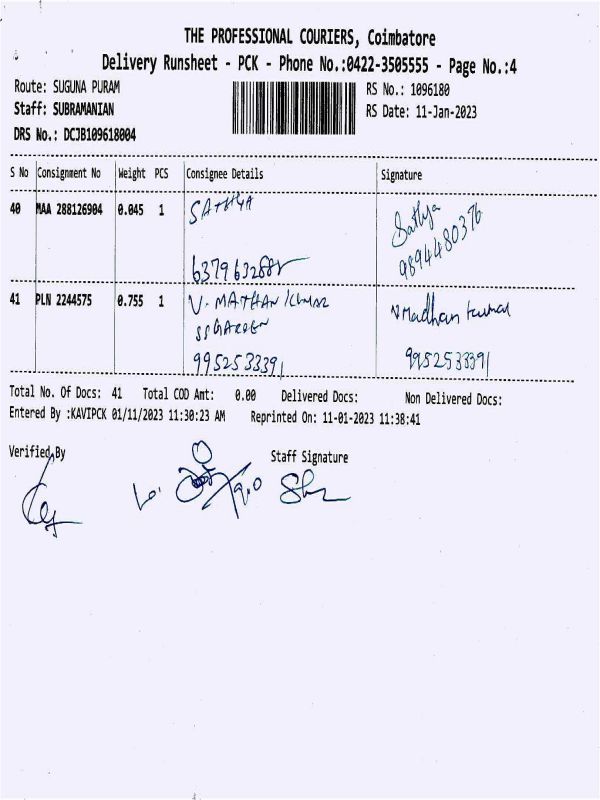 THE PROFESSIONAL COURIERS, Coimbatore
Delivery Runsheet - PCK - Phone No.:0422-3505555 - Page No.:4
Route: SUGUNA PURAM
RS No.: 1096180
Staff: SUBRAMANIAN
RS Date: 11-Jan-2023
DRS No.: DCJB109618004
S No Consignment No Weight PCS Consignee Details Signature
40 MAA 288126904 0.045 1 SATHYA Sathya
9894480376
41 PLN 2244575 0.755 1 V. MATHAN KUMAR V Madhan kumar
SS GARDEN
9952533391 9952533391
Total No. Of Docs: 41 Total COD Amt: 0.00 Delivered Docs: Non Delivered Docs:
Entered By :KAVIPCK 01/11/2023 11:30:23 AM Reprinted On: 11-01-2023 11:38:41
Verified By Staff Signature